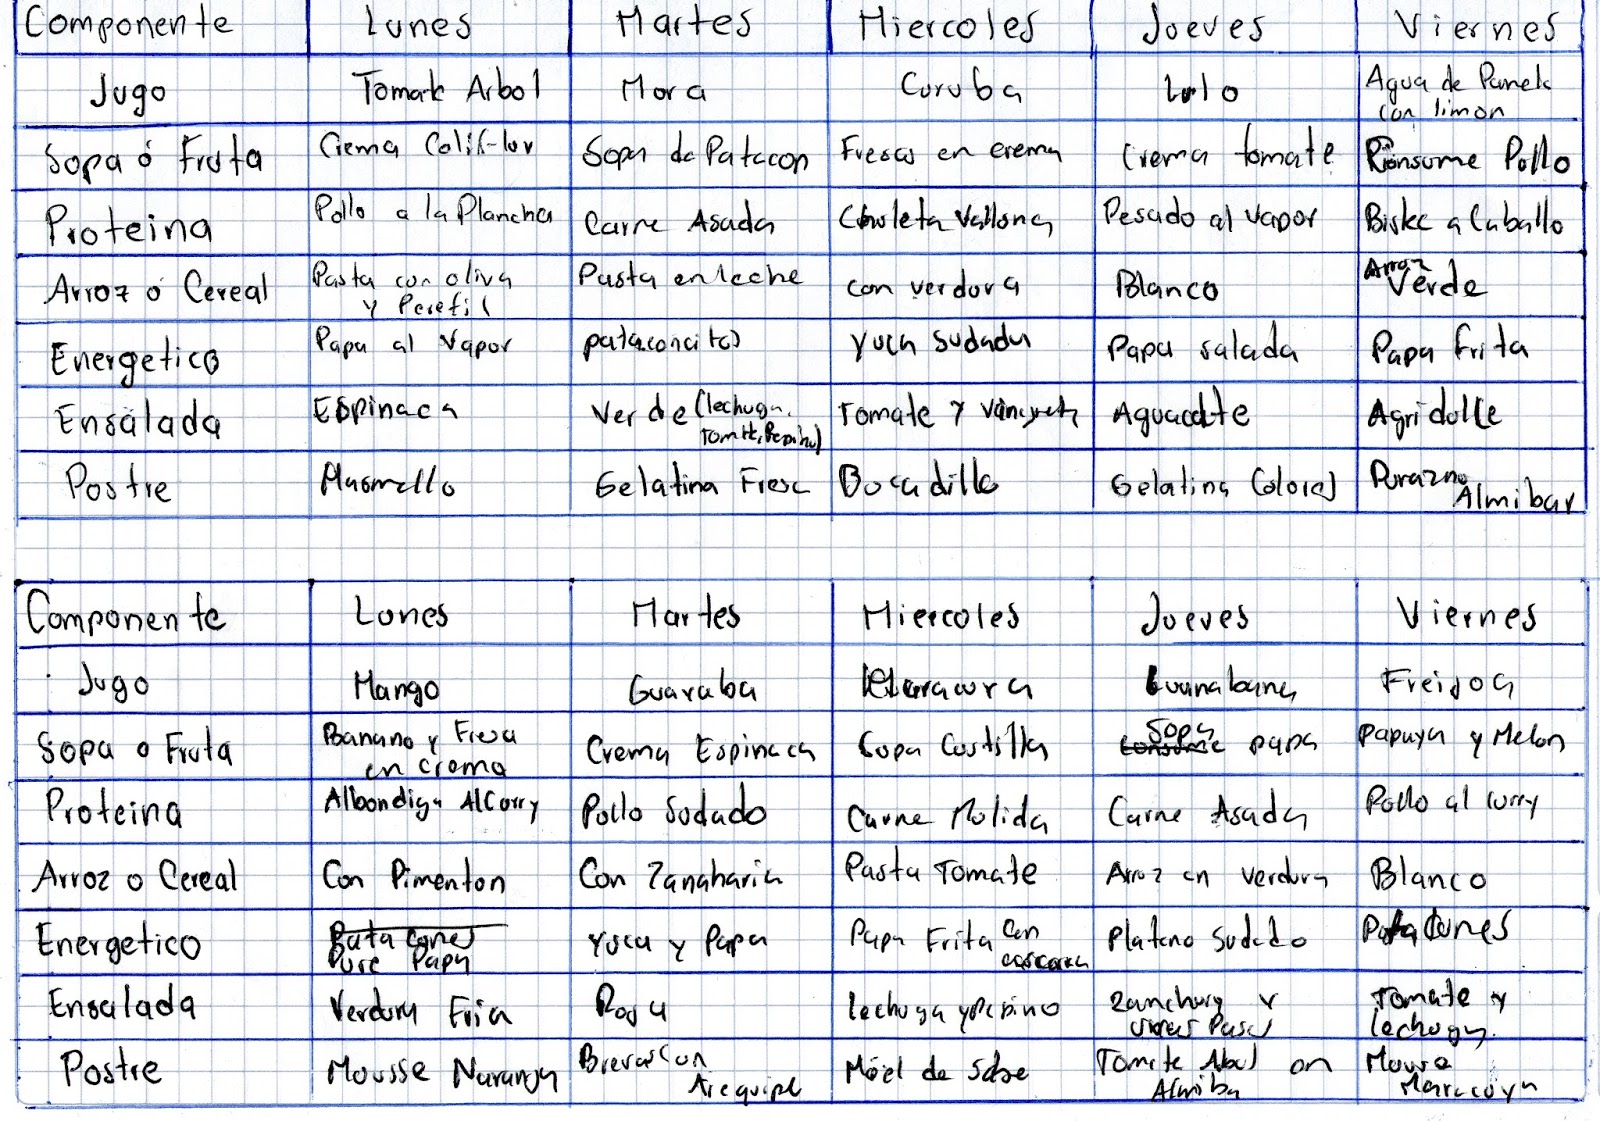 Componente Lunes Martes Miercoles Jueves Viernes
Jugo Tomate Arbol Mora Curuba Lulo Agua de Panela con limon
Sopa ó Fruta Crema Coliflor Sopa de Patacon Fresas en crema Crema tomate Consume Pollo
Proteina Pollo a la Plancha Carne Asada Chuleta Vallona Pesado al vapor Bistec a Caballo
Arroz ó Cereal Pasta con oliva y Perefil Pasta en leche con verdura Blanco Arroz Verde
Energetico Papa al Vapor pataconcitos Yuca Sudada Papa salada Papa Frita
Ensalada Espinaca Verde (lechuga, tomate, Pepino) Tomate y Aguacate Agridulce
Postre Masmello Gelatina Fresa Bocadillo Gelatina Colores Durazno Almibar
Componente Lunes Martes Miercoles Jueves Viernes
Jugo Mango Guayaba Guanabana Freijoa
Sopa o Fruta Banano y Fresa en crema Crema Espinaca Sopa Costilla Sopa consume papa Papaya y Melon
Proteina Albondiga Al Curry Pollo Sudado Carne Molida Carne Asada Pollo al curry
Arroz o Cereal Con Pimenton Con Zanaharia Pasta Tomate Arroz en verdura Blanco
Energetico Patacones Pure Papa Yuca y Papa Papa Frita con cascara Platano Sudado Patacones
Ensalada Verdura Fria lechuga y Pepino Zanahoria y uvas Pasas Tomate y lechuga
Postre Mousse Naranja Brevas con Arequipe Tomate Abol en Almiba Mouse Maracuya